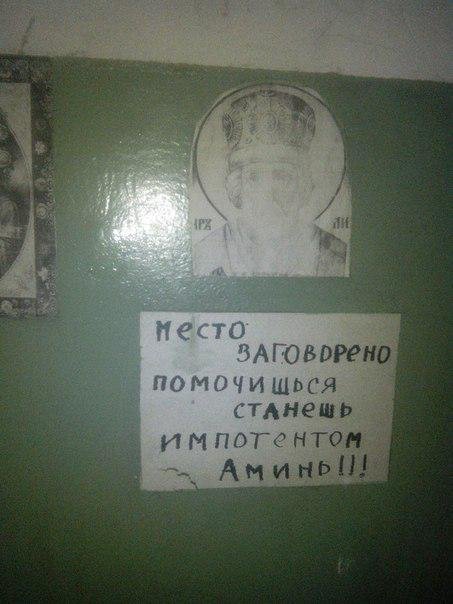 ИРЪ
ЛИ
МЕСТО
ЗАГОВОРЕНО
ПОМОЧИШЬСЯ
СТАНЕШЬ
ИМПОТЕНТОМ
АМИНЬ!!!